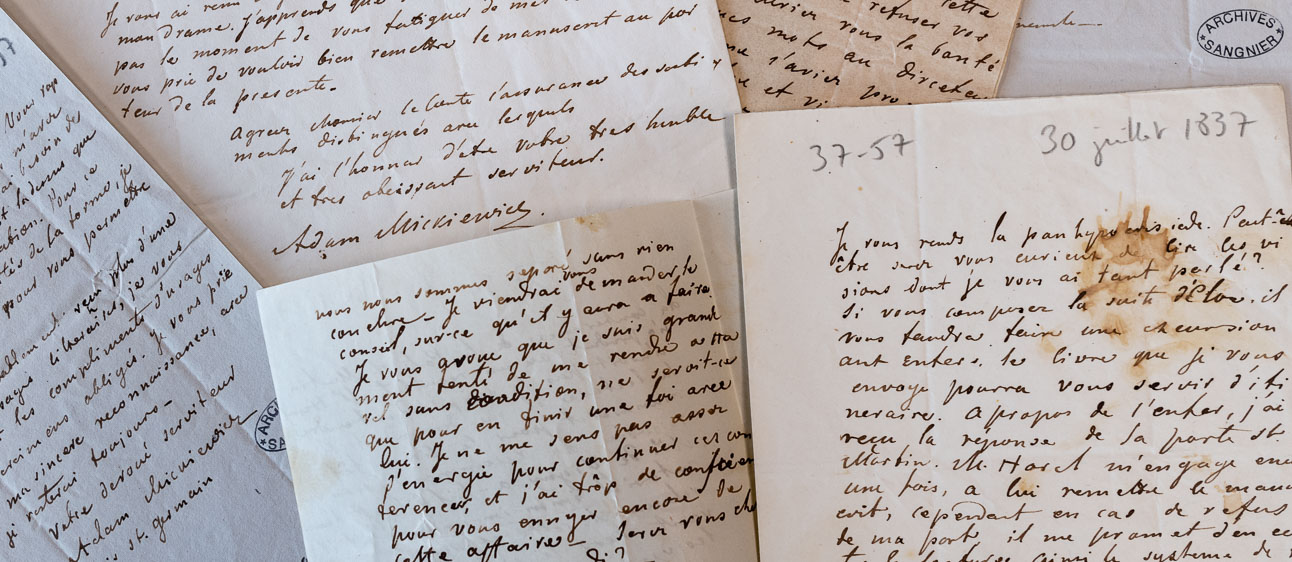 Je vous ai remi
mon Drame. J'apprends que
pas le moment de vous fatiguer de mes
vous prie de vouloir bien remettre le manuscrit au por
teur de la presente.
Agreez Monsieur le Comte l'assurance des senti
ments distingués avec lesquels
j'ai l'honneur d'etre votre tres humble
et tres obeissant serviteur.
Adam Mickiewicz.
cette
refuser vos
vous la bonté
mots au directeu
l'avier pro
et vi
ARCHIVES
SANGNIER
37
Vous
n'avoir
besoin de
la dessus que
Pour ce
de la forme, je
pour vous permettre
plus d'une
je vous
les compliments d'usages
obligés. Je vous prie
ma sincere reconnaissance, avec
je toujours
Votre devoué serviteur
Adam Mickiewicz
st. germain
ARCH
SAN
nous nous sommes separé sans rien
conclure – Je viendrai vous demander le
conseil, sur ce qu'il y aura a faire.
Je vous avoue que je suis grande
ment tenté de me rendre a Ha
rel sans condition, ne servit-ce
que pour en finir une foi avec
lui. Je ne me sens pas assez
d'energie pour continuer ces con
ferences, et j'ai trôp de conscien
pour vous ennuyer encore de
cette affaire – vous
37-57
30 juillet 1837
Je vous rends la panhypocrisiade. Peut-
être serez vous curieux de lire les vi
sions dont je vous ai tant parlé?
Si vous composez la suite d'Eloa, il
vous faudra faire une excursion
aux enfers. le livre que je vous
envoye pourra vous servir d'iti
neraire. A propos de l'enfer, j'ai
reçu la reponse de la porte St.
Martin. M. Harel m'engage enc
une fois, a lui remettre le manu
crit, cependant en cas de refus
de ma part, il me promet d'en
ainsi le systeme de